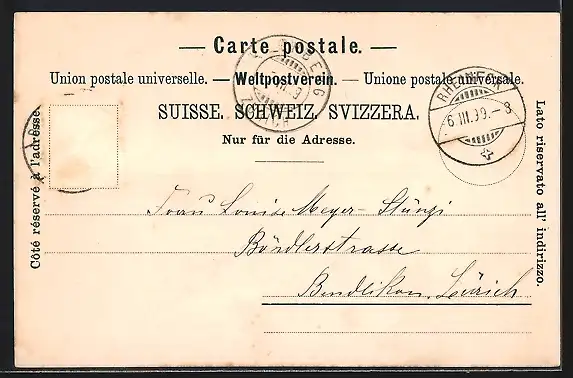 — Carte postale. —
Union postale universelle. — Weltpostverein. — Unione postale universale.
SUISSE. SCHWEIZ. SVIZZERA.
Nur für die Adresse.
Côté réservé à l'adresse.
Lato riservato all' indirizzo.
RHEINECK
6.III.99.–8
Frau Louise Meyer-Stünzi
Bördlerstrasse
Bendlikon, Zürich